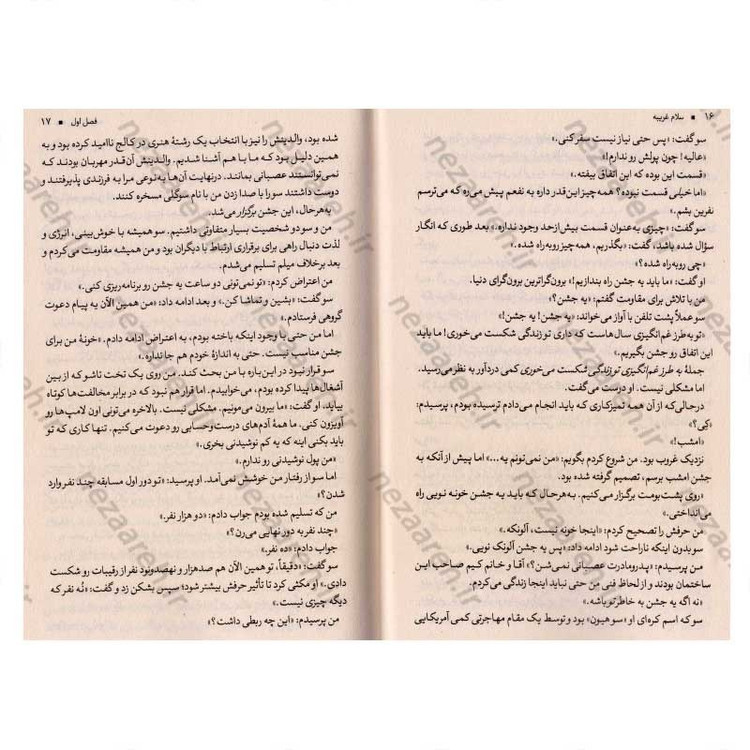 ۱۶ ■ سلام غریبه
سو گفت: «پس حتی نیاز نیست سفر کنی.»
«عالیه! چون پولش رو ندارم!»
«قسمت این بوده که این اتفاق بیفته.»
«اما خیلی قسمت نبوده؟ همه‌چیز این‌قدر داره به نفعم پیش می‌ره که می‌ترسم
نفرین بشم.»
سو گفت: «چیزی به‌عنوان قسمت بیش‌ازحد وجود نداره.» بعد طوری که انگار
سؤال شده باشد، گفت: «بگذریم، همه‌چیز روبه‌راه شده.»
«چی روبه‌راه شده؟»
او گفت: «ما باید یه جشن راه بندازیم!» برون‌گراترین برون‌گرای دنیا.
من با تلاش برای مقاومت گفتم: «یه جشن؟»
سو عملاً پشت تلفن با آواز می‌خواند: «یه جشن! یه جشن!»
«تو به‌طرز غم‌انگیزی سال‌هاست که داری تو زندگی شکست می‌خوری! ما باید
این اتفاق رو جشن بگیریم.»
جملهٔ به طرز غم‌انگیزی تو زندگی شکست می‌خوری کمی دردآور به نظر می‌رسید.
اما مشکلی نیست. او درست می‌گفت.
درحالی‌که از آن همه تمیزکاری که باید انجام می‌دادم ترسیده بودم، پرسیدم:
«کِی؟»
«امشب!»
نزدیک غروب بود. من شروع کردم بگویم: «من نمی‌تونم یه...» اما پیش از آنکه به
جشن امشب برسم، تصمیم گرفته شده بود.
«روی پشت‌بومت برگزار می‌کنیم. به‌هرحال که باید یه جشن خونه نویی راه
می‌انداختی.»
من حرفش را تصحیح کردم: «اینجا خونه نیست، آلونکه.»
سو بدون اینکه ناراحت شود ادامه داد: «پس یه جشن آلونک نویی.»
من پرسیدم: «پدرومادرت عصبانی نمی‌شن؟» آقا و خانم کیم صاحب این
ساختمان بودند و از لحاظ فنی من حتی نباید اینجا زندگی می‌کردم.
«نه اگه یه جشن به خاطر تو باشه.»
سو که اسم کره‌ای او «سو هیون» بود و توسط یک مقام مهاجرتی کمی آمریکایی
فصل اول ■ ۱۷
شده بود، والدینش را نیز با انتخاب یک رشتهٔ هنری در کالج ناامید کرده بود و به
همین دلیل بود که ما با هم آشنا شدیم. والدینش آن‌قدر مهربان بودند که
نمی‌توانستند عصبانی بمانند. درنهایت آن‌ها به‌نوعی مرا به فرزندی پذیرفتند و
دوست داشتند سو را با صدا زدن من با نام سوگلی مسخره کنند.
به‌هرحال، این جشن برگزار می‌شد.
من و سو دو شخصیت بسیار متفاوتی داشتیم. سو همیشه با خوش‌بینی، انرژی و
لذت دنبال راهی برای برقراری ارتباط با دیگران بود و من همیشه مقاومت می‌کردم و
بعد برخلاف میلم تسلیم می‌شدم.
من اعتراض کردم: «تو نمی‌تونی دو ساعت یه جشن رو برنامه‌ریزی کنی.»
سو گفت: «بشین و تماشا کن.» و بعد ادامه داد: «من همین الآن یه پیام دعوت
گروهی فرستادم.»
اما من حتی با وجود اینکه باخته بودم، به اعتراض ادامه دادم. «خونهٔ من برای
جشن مناسب نیست. حتی به اندازهٔ خودم هم جا نداره.»
سو قرار نبود در این باره با من بحث کند. من روی یک تخت تاشو که از بین
آشغال‌ها پیدا کرده بودم، می‌خوابیدم. اما قرار هم نبود که در برابر مخالفت‌ها کوتاه
بیاید. او گفت: «ما بیرون می‌مونیم. مشکلی نیست. بالاخره می‌تونی اون لامپ‌ها رو
آویزون کنی. ما همهٔ آدم‌های درست‌وحسابی رو دعوت می‌کنیم. تنها کاری که تو
باید بکنی اینه که یه کم نوشیدنی بخری.»
«من پول نوشیدنی رو ندارم.»
اما سو از رفتار من خوشش نمی‌آمد. او پرسید: «تو دور اول مسابقه چند نفر وارد
شدن؟»
من که تسلیم شده بودم جواب دادم: «دو هزار نفر.»
«چند نفر به دور نهایی می‌رن؟»
جواب دادم: «ده نفر.»
سو گفت: «دقیقاً، تو همین الآن هم صدهزار و نهصدونود نفر از رقیبات رو شکست
دادی.» او مکثی کرد تا تأثیر حرفش بیشتر شود؛ سپس بشکن زد و گفت: «نُه نفر که
دیگه چیزی نیست.»
من پرسیدم: «این چه ربطی داشت؟»
nezaareh.ir